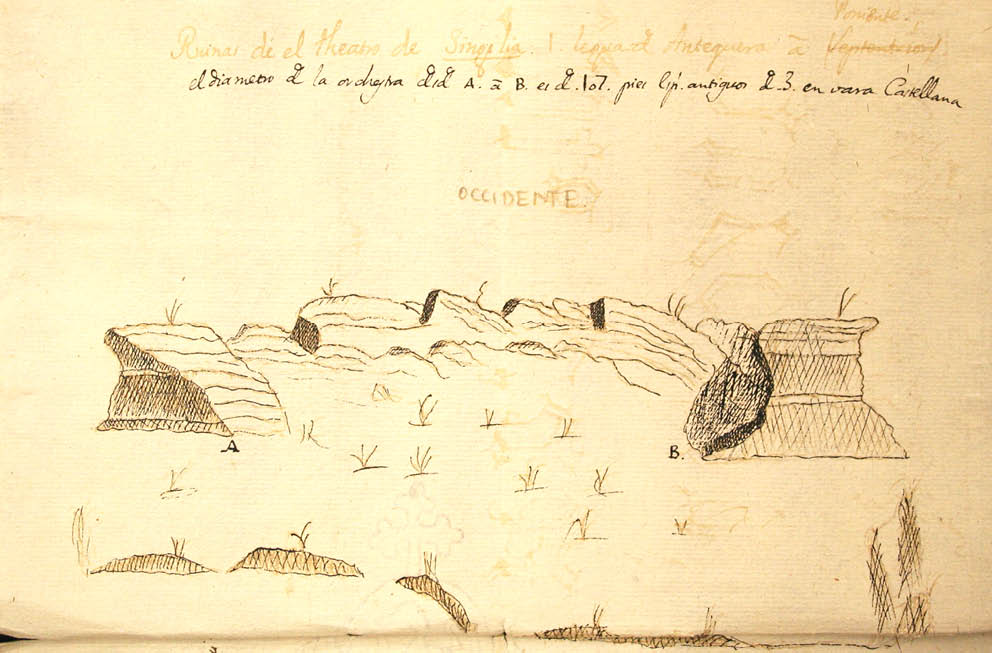 Poniente.
Ruinas de el theatro de Singilia. 1 legua đ Antequera ā (Septentrion)
el diametro đ la orchestra đsđ A. ā B. es đ 107. pies antiguos đ 3. en vara Castellana
OCCIDENTE.
A
B.